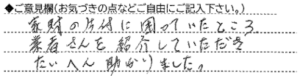 ◆ご意見欄(お気づきの点などご自由にご記入下さい。)
家財の片付に困っていたところ
業者さんを紹介していただき
たいへん助かりました。